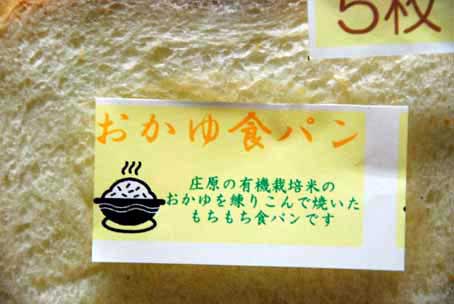 5枚
おかゆ食パン
庄原の有機栽培米の
おかゆを練りこんで焼いた
もちもち食パンです